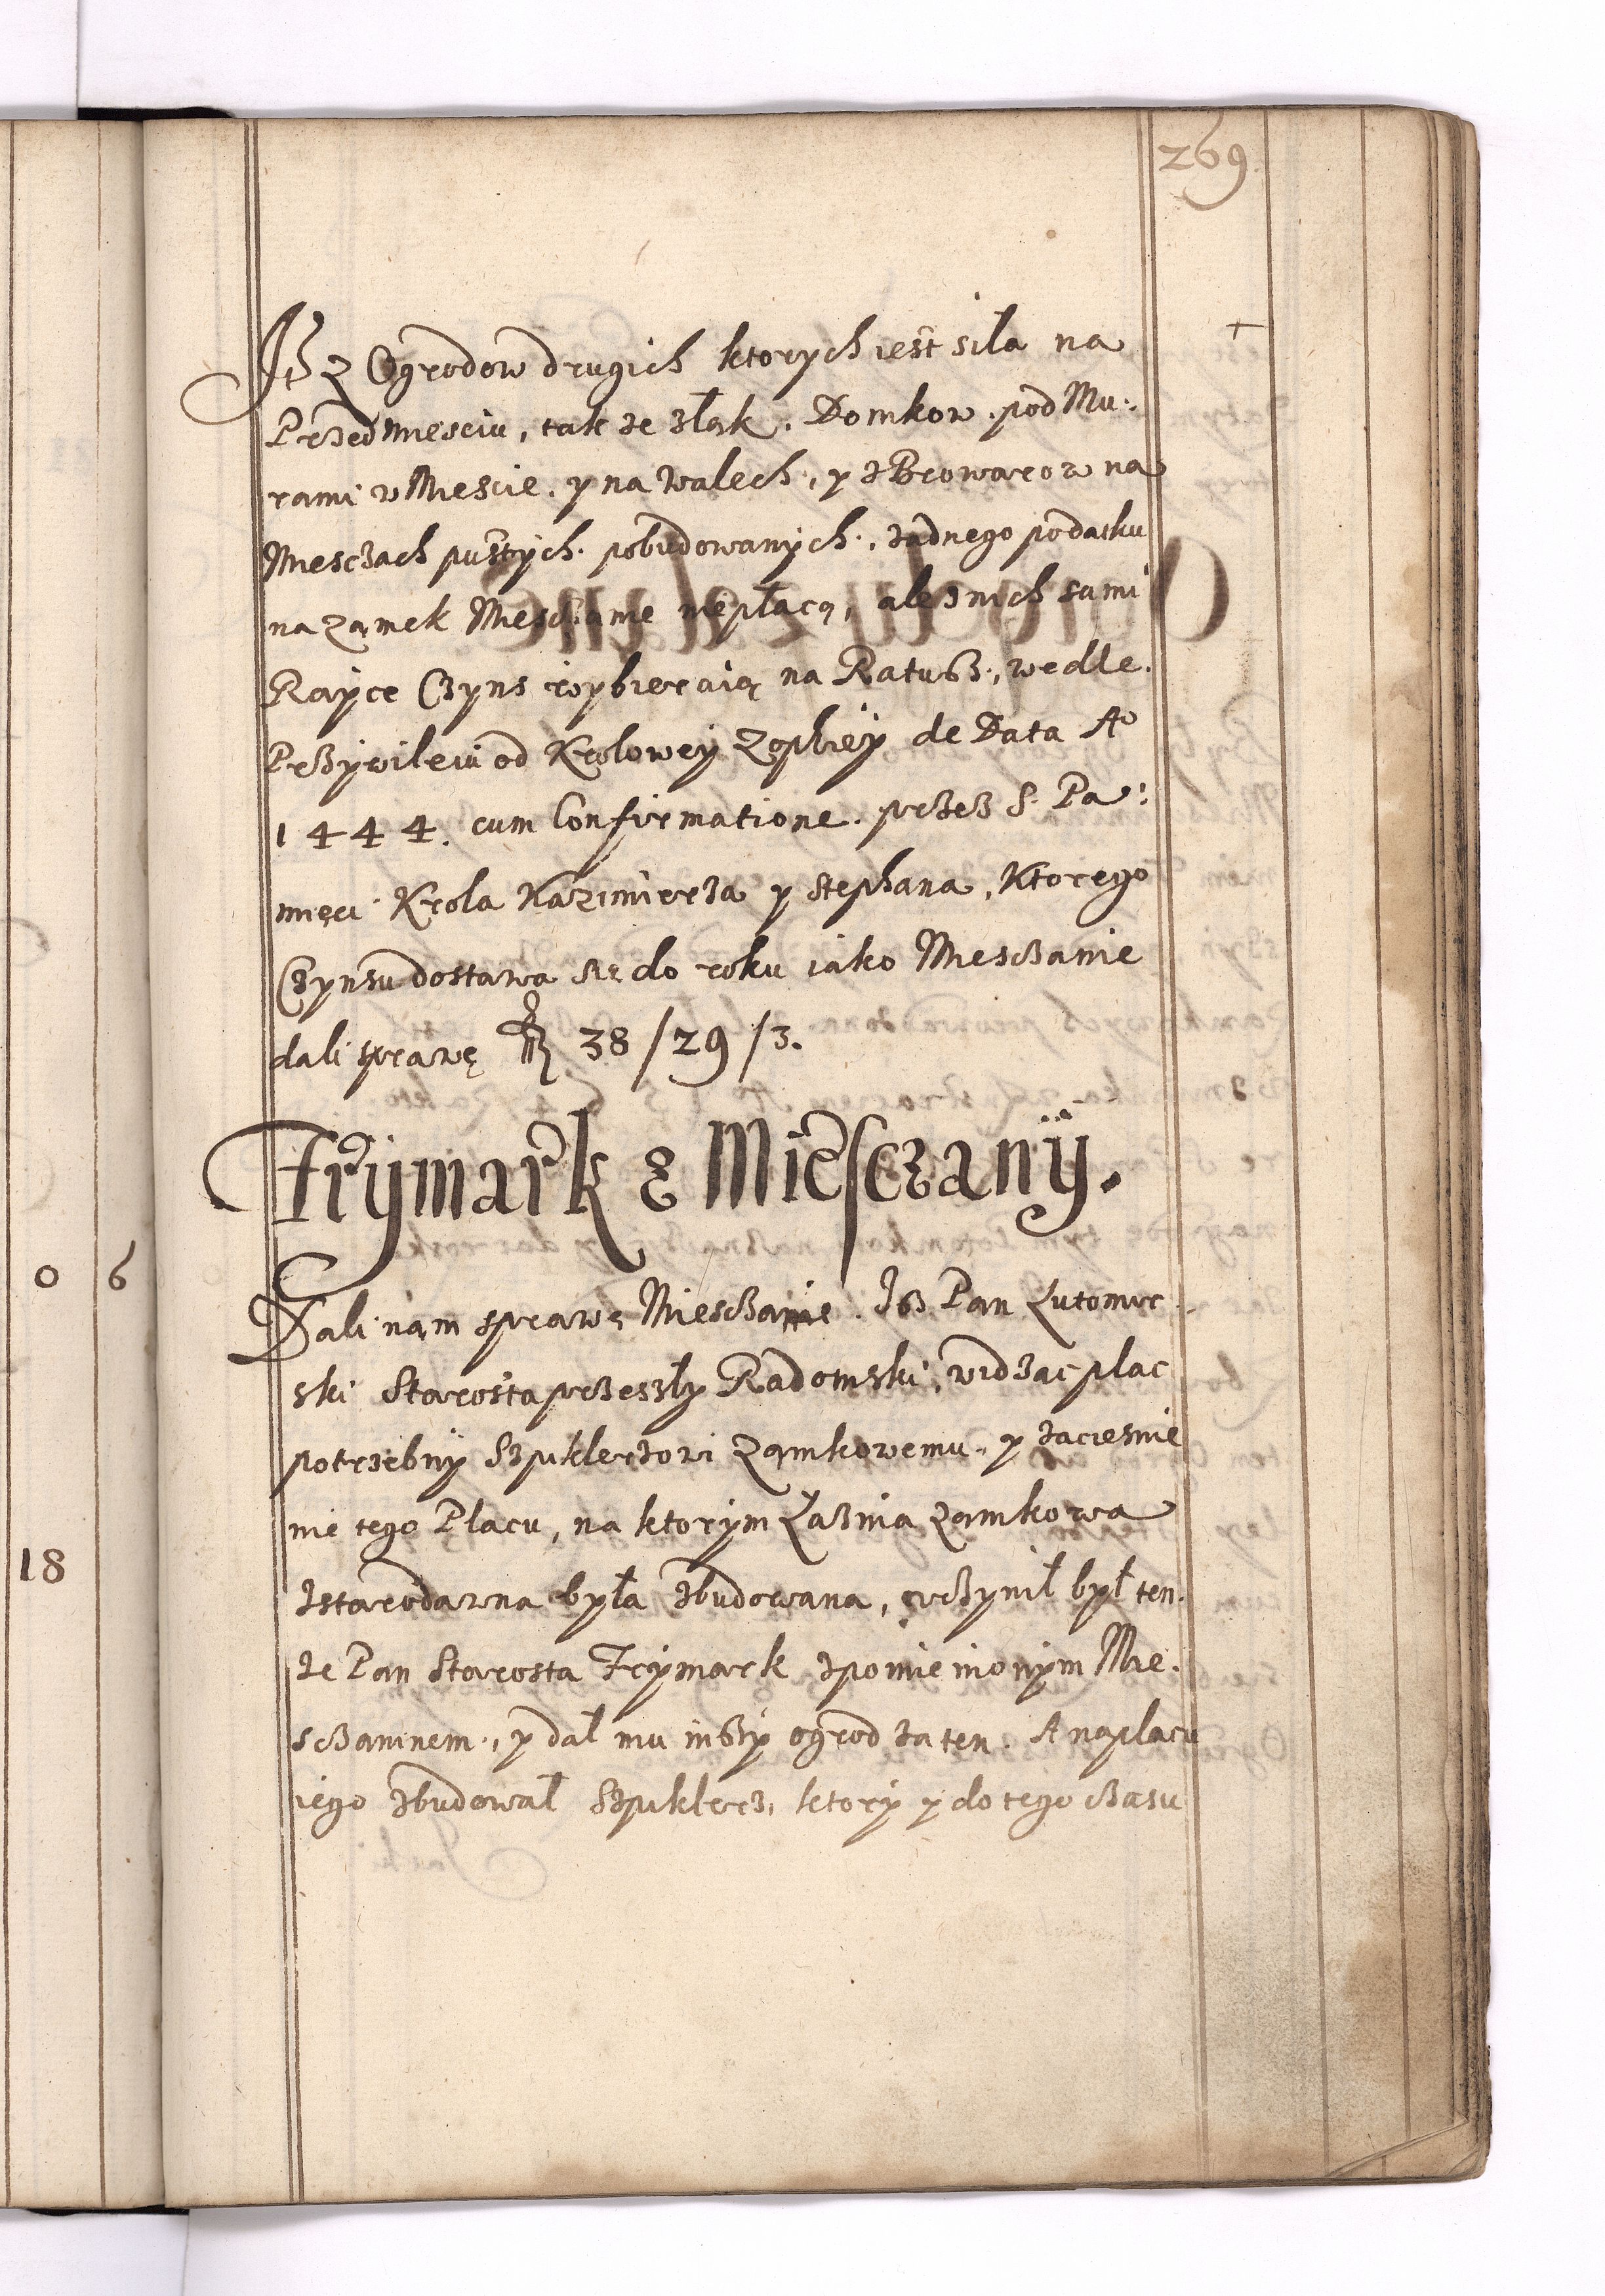 269
It z Ogrodow drugich ktorych iest siła na
Przedmiesciu, tak ze złak. Domkow. pod Mu:
rami w Miescie. y na Walech, y z Browarow na
Miesczach pustych. pobudowanych, zadnego podatku
na zamek Mieszczanie niepłacą, ale z nich sami
Rayce Czyns wybieraią na Ratusz, wedle.
Przywileiu od Krolowey Zophiey de Data Aº
1444. cum Confirmatione. przez S. Pa:
mięci Krola Kazimierza y Stephana, Ktorego
Czynsu dostawa się do roku iako Miesczanie
dali sprawę 38/29/3.
Frymark z Miesczany.
Dali nam sprawę Miesczanie. Isz Pan Lutomir
ski Starosta przeszły Radomski, widząc plac
potrzebny Szpklerzowi Zamkowemu, y zaciesnie
nie tego Placu, na ktorym Łaznia Zamkowa
zstarodawna była zbudowana, uczynił był ten.
ze Pan Starosta Frymark zpomienionym Mie.
sczaninem, y dał mu inszy ogrod za ten. A naplacu
iego zbudował Szpklerz, ktory y do tego czasu
0 6
18